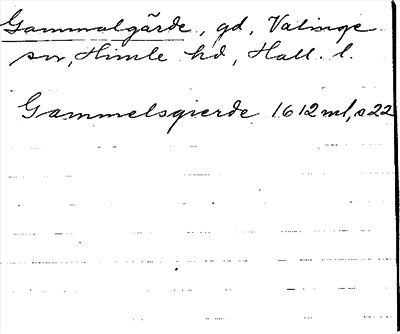 Gammalgärde, gd, Valinge
sn, Himle hd, Hall. l.
Gammelsgierde 1612 ml, s 22